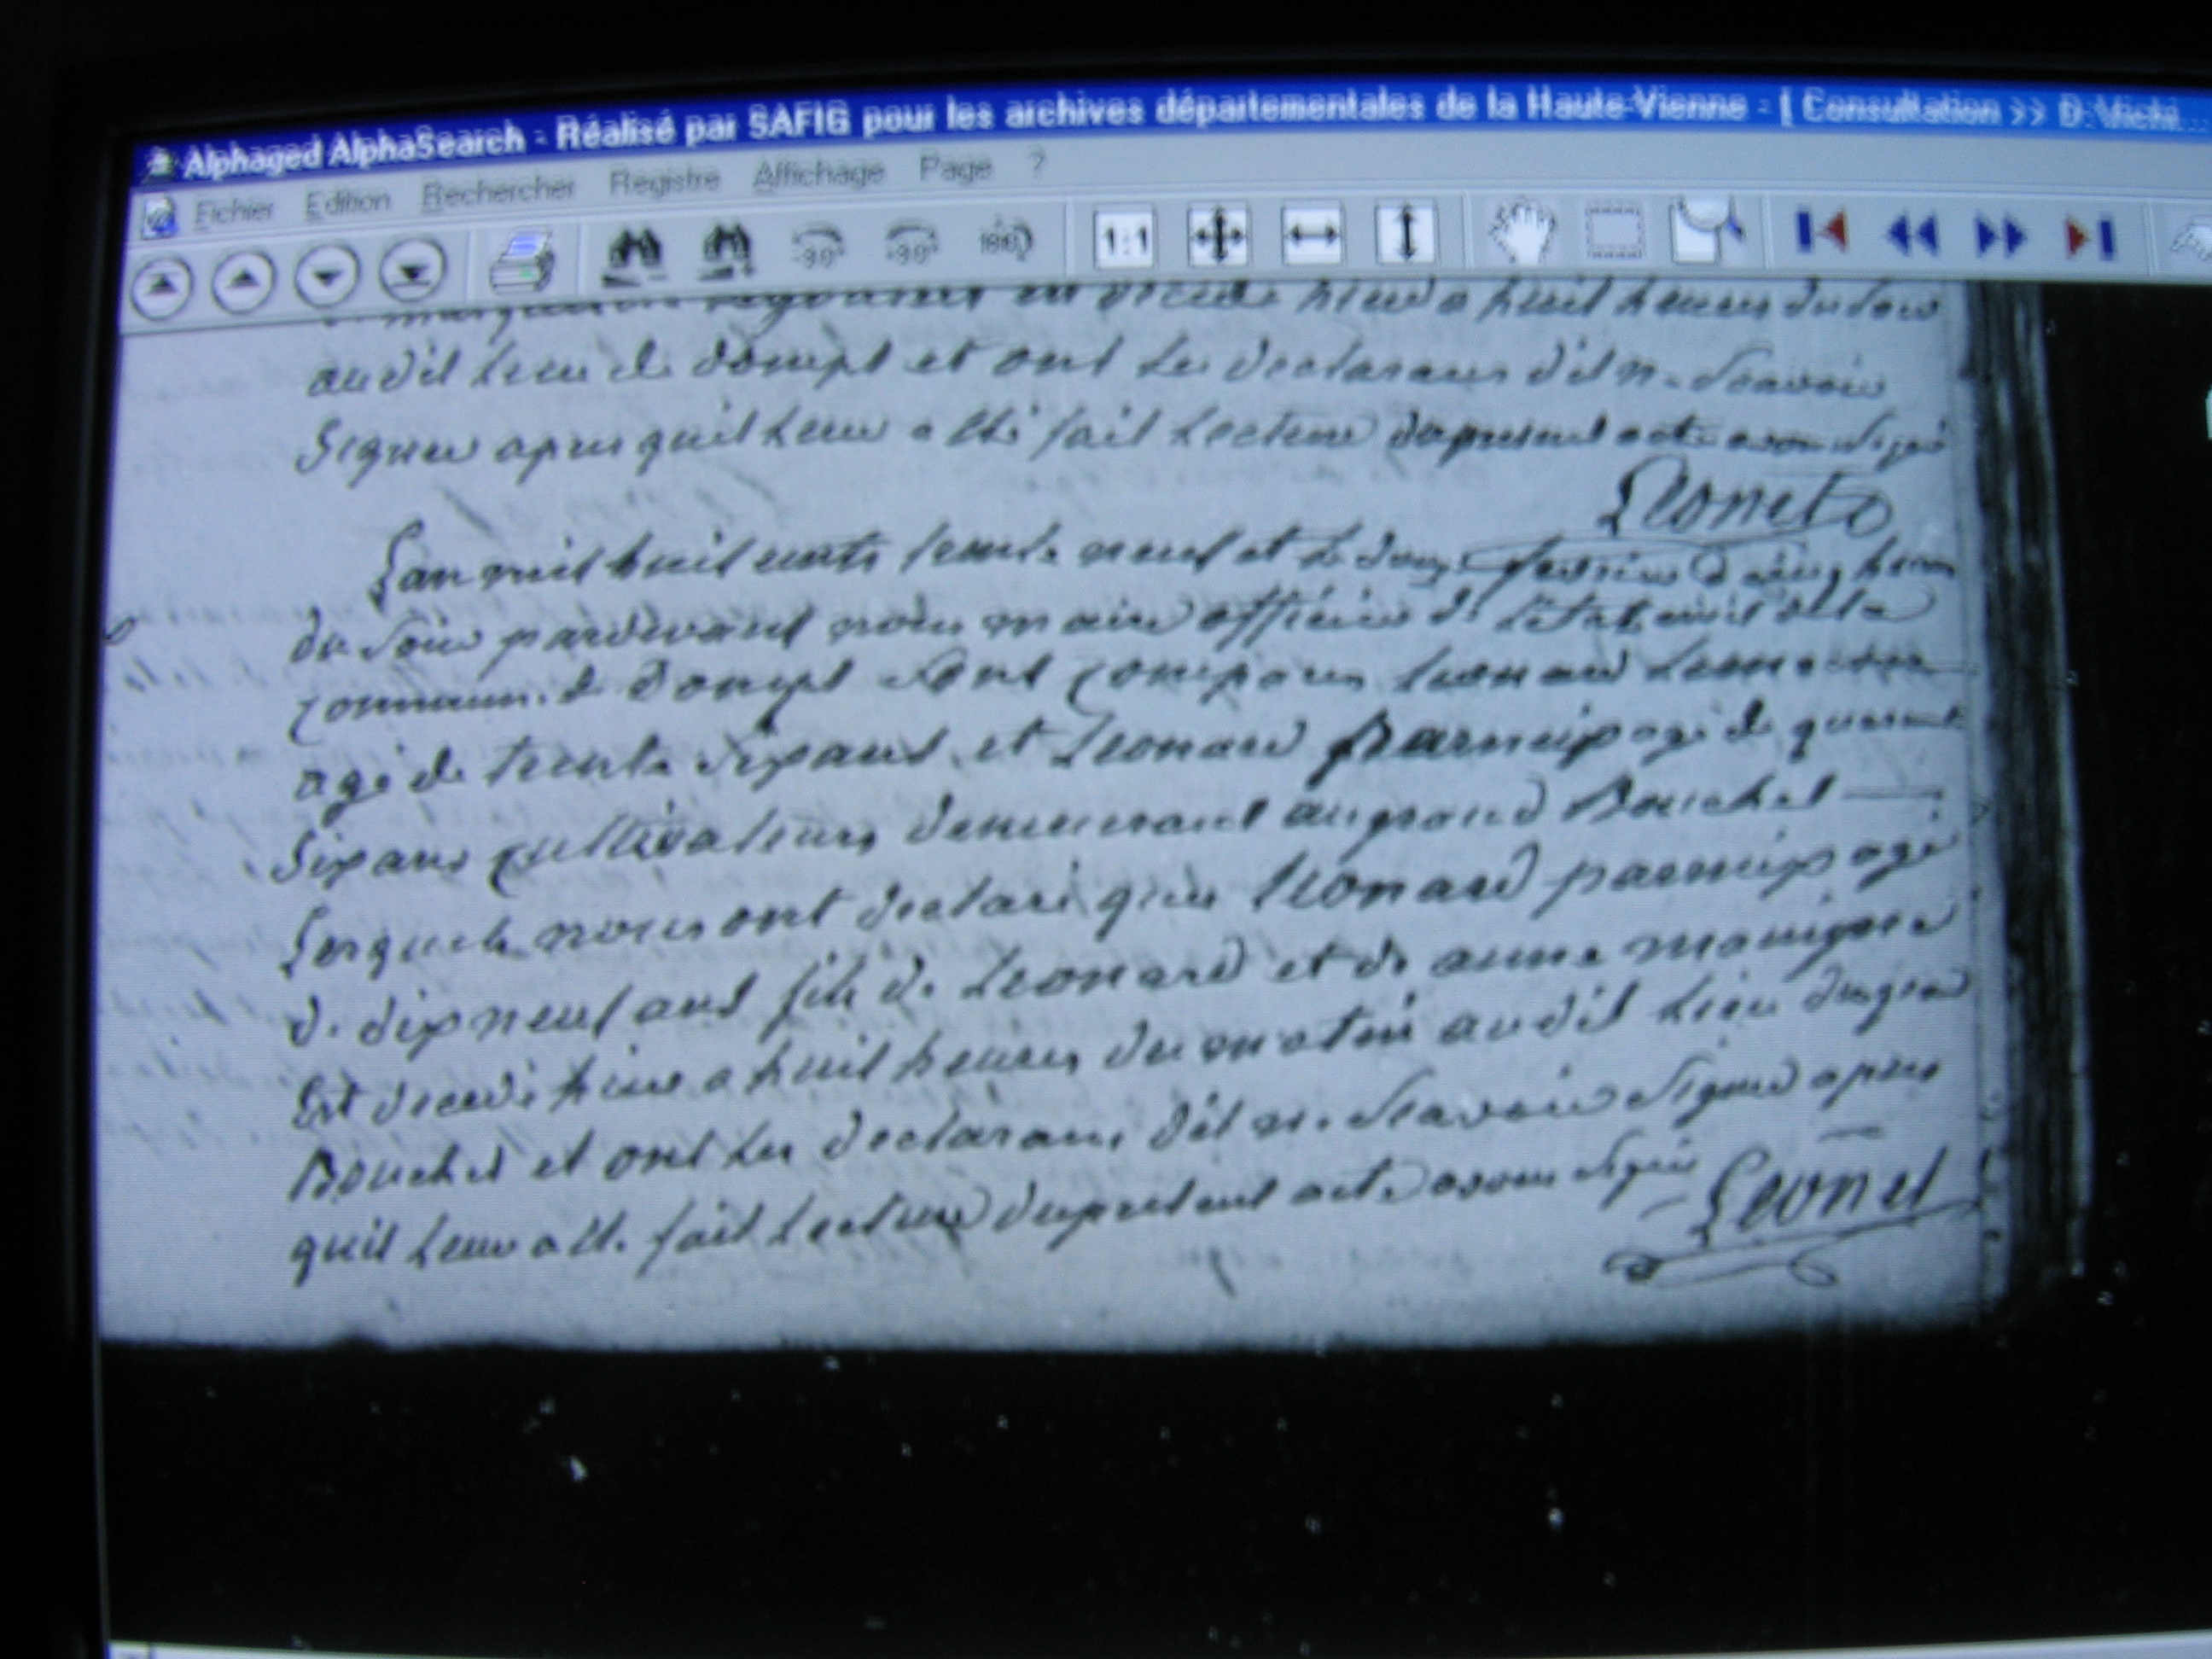 Alphaged AlphaSearch - Réalisé par SAFIG pour les archives départementales de la Haute-Vienne - [ Consultation >> D:\Vichi...
Fichier Edition Rechercher Registre Affichage Page ?
-90° +90° 180° 1:1
en decede hier a huit heures du soir
audit lieu de dompt et ont les declarans dit ne Scavoir
Signer apres quil leur a ete fait Lecture du present acte avons signé
Leonet
Lan mil huit cents trente neuf et le douze fevrier a cinq heures
du Soir pardevant nous maire officier de letat civil de la
commune de Dompt sont comparus leonard
agé de trente Six ans et Leonard parneix agé de quarante
Six ans cultivateurs demeurant au grand Bouchet
Lesquels nous ont declaré que leonard parneix agé
de dix neuf ans fils de Leonard et de anne manigne
Est decedé hier a huit heures du matin audit lieu du grand
Bouchet et ont les declarans dit ne Scavoir Signer apres
quil leur a ete fait Lecture du present acte avons signé
Leonet